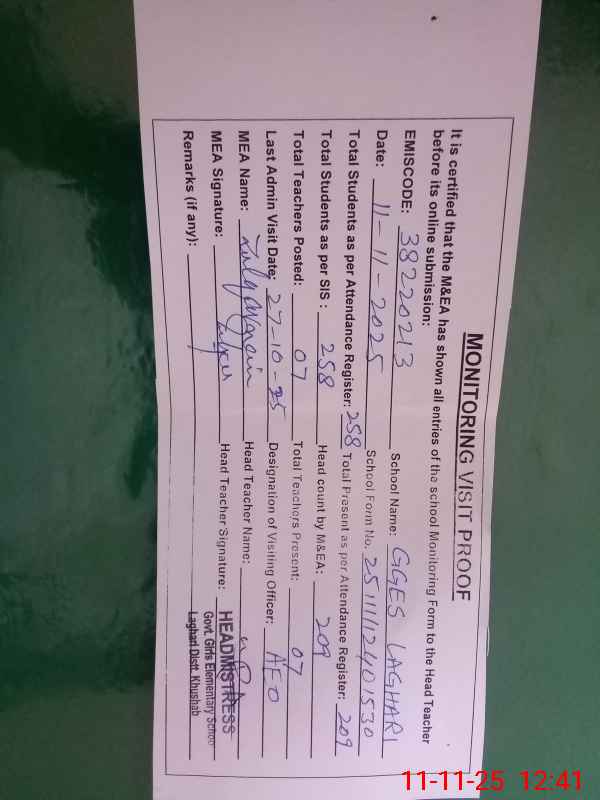 MONITORING VISIT PROOF
It is certified that the M&EA has shown all entries of the school Monitoring Form to the Head Teacher
before its online submission:
EMISCODE: 38220213 School Name: GGES LAGHARI
Date: 11-11-2025 School Form No. 25111112401530
Total Students as per Attendance Register: 258 Total Present as per Attendance Register: 209
Total Students as per SIS : 258 Head count by M&EA: 209
Total Teachers Posted: 07 Total Teachers Present: 07
Last Admin Visit Date: 27-10-25 Designation of Visiting Officer: AEO
MEA Name: Head Teacher Name:
MEA Signature: Head Teacher Signature:
HEADMISTRESS
Govt. Girls Elementary School
Laghari Distt. Khushab
Remarks (if any):
11-11-25 12:41